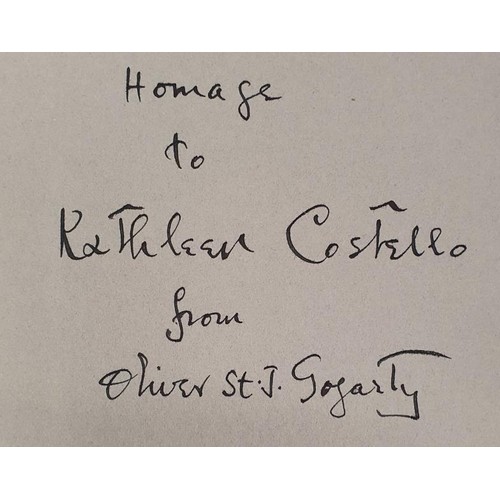 Homage
to
Kathleen Costello
from
Oliver St. J. Gogarty